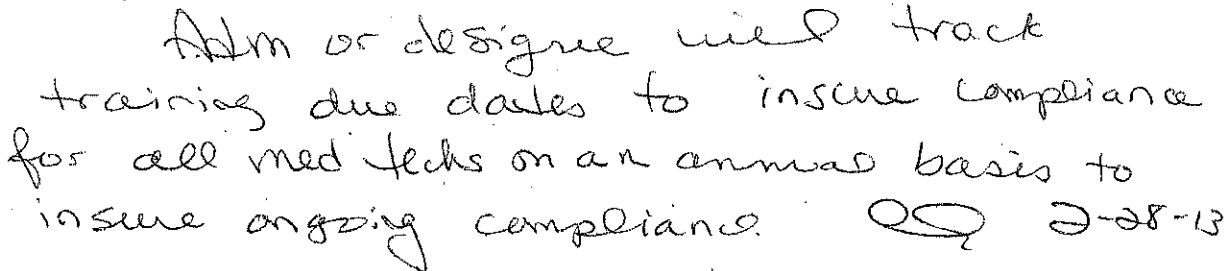 Adm or designee will track
training due dates to insure compliance
for all med techs on an annual basis to
insure ongoing compliance. 2-28-13